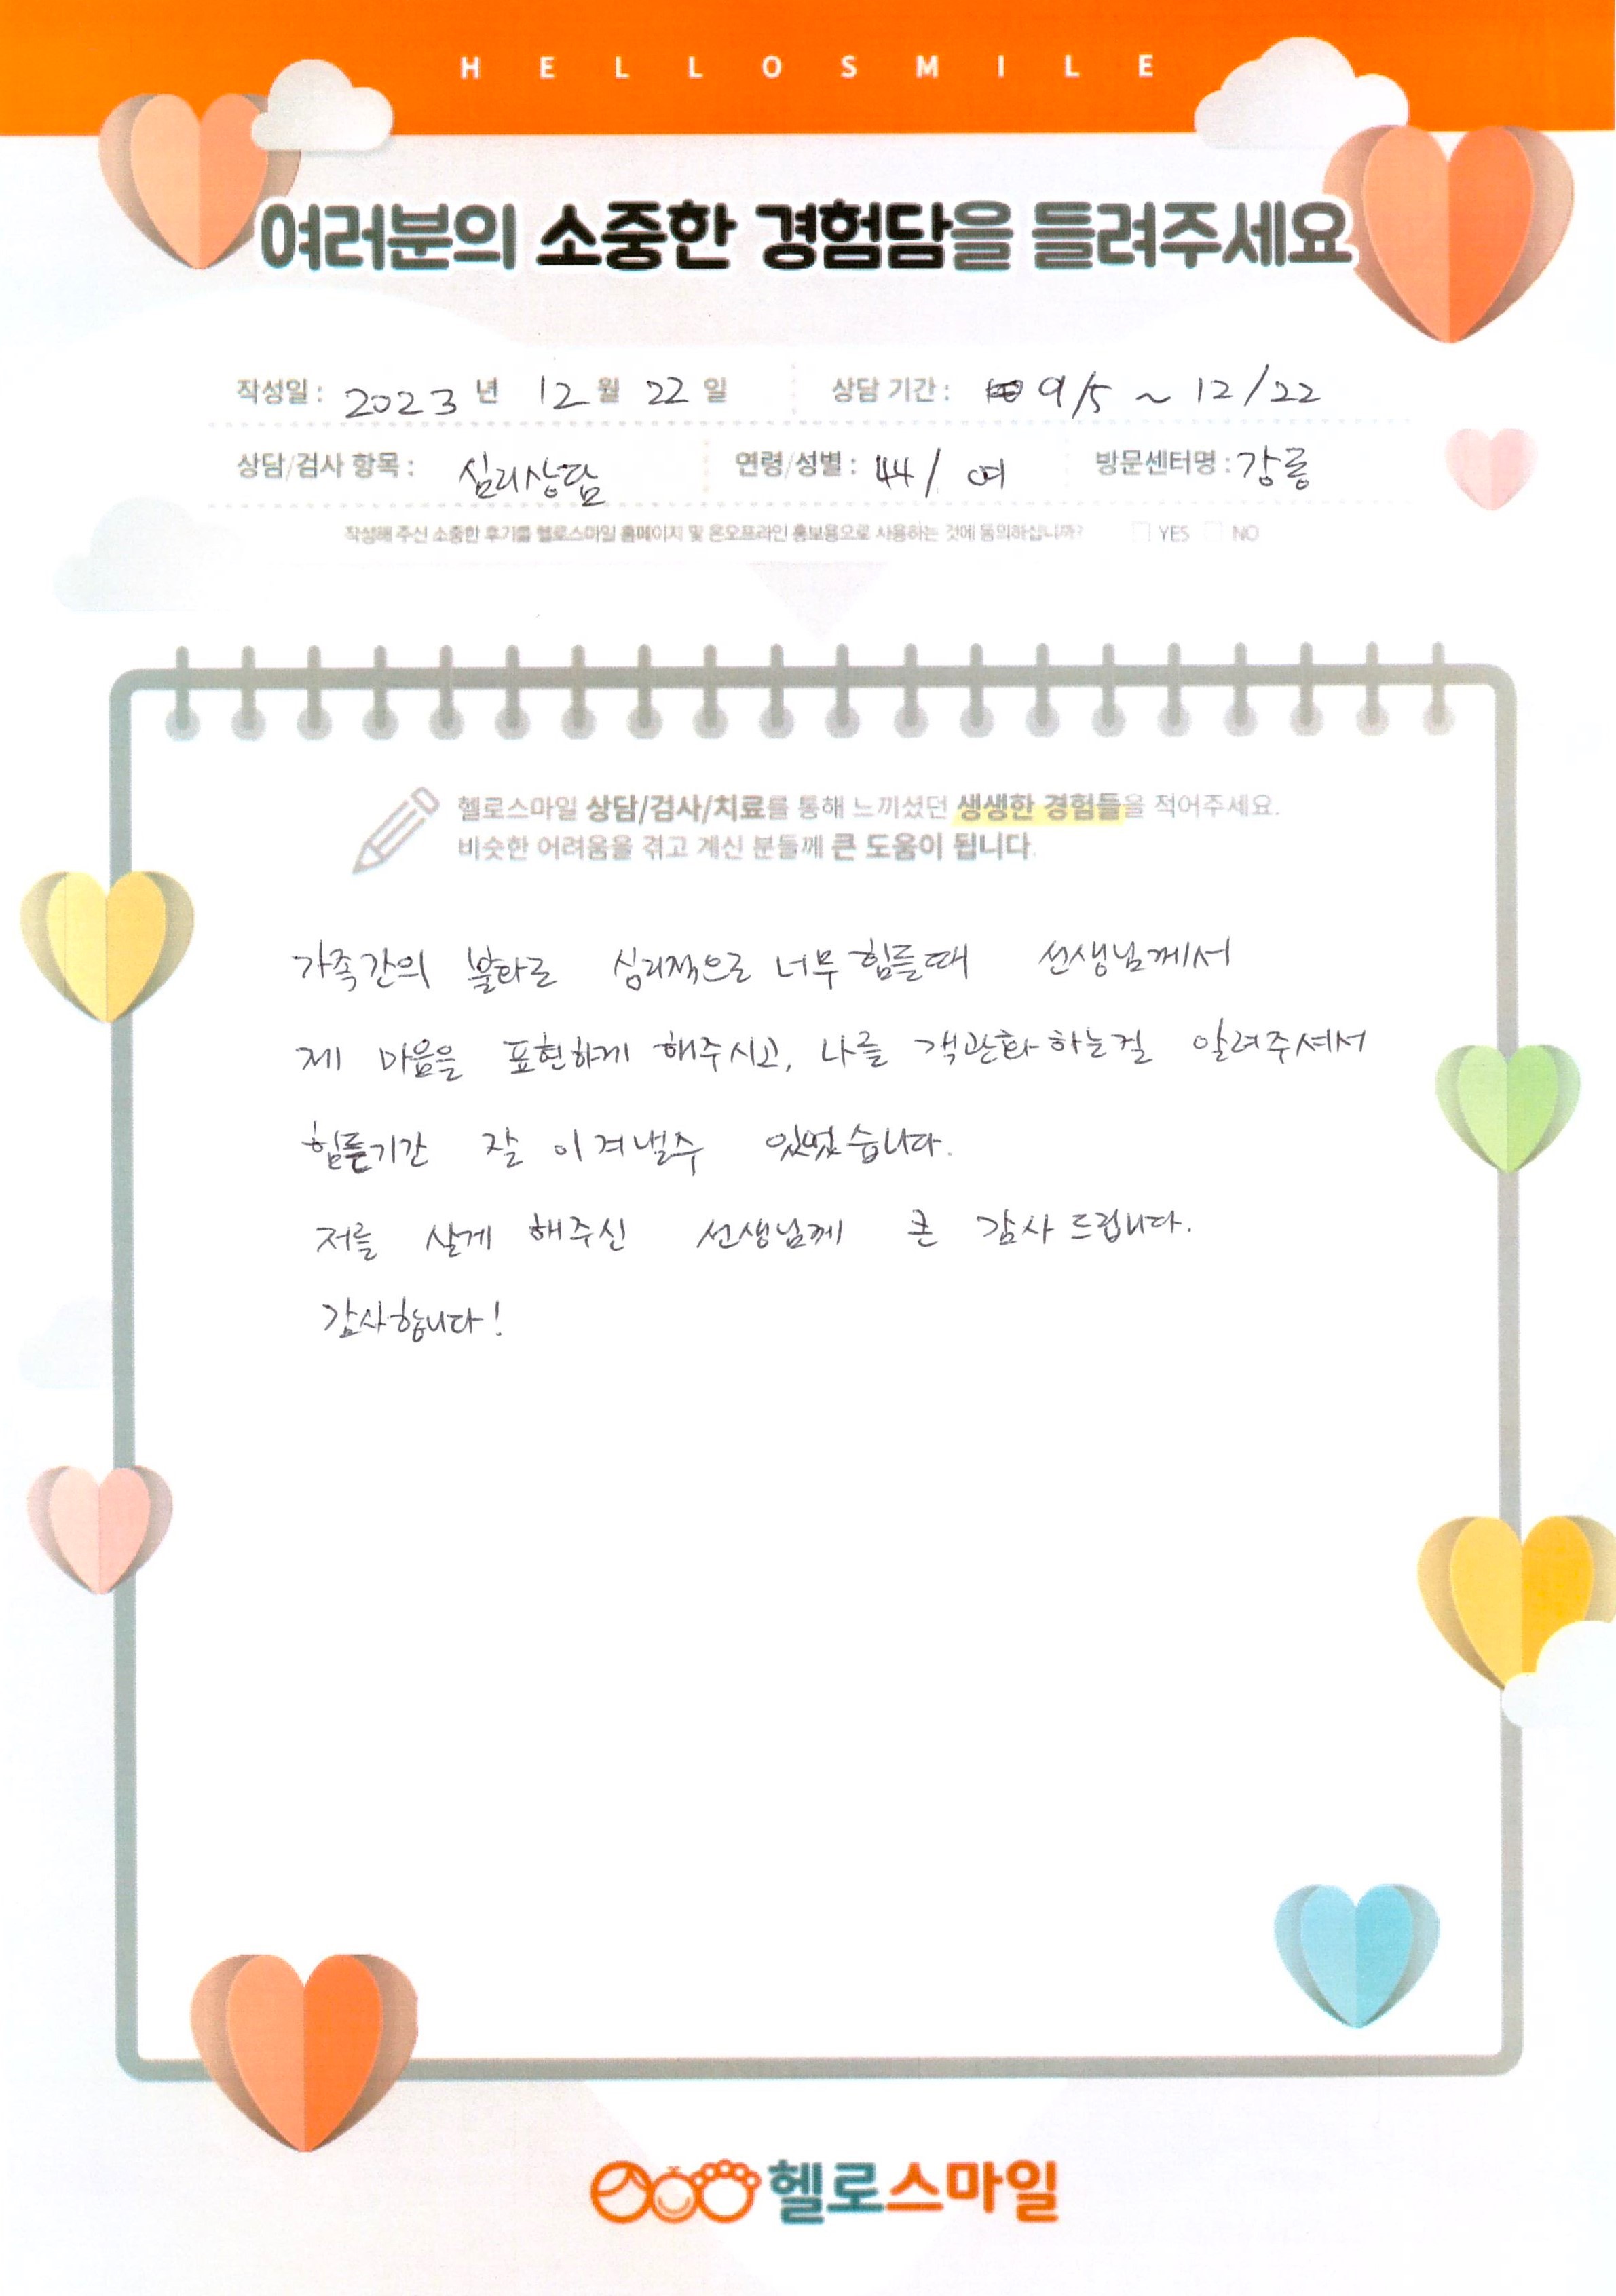 HELLOSMILE
여러분의 소중한 경험담을 들려주세요
작성일 : 2023 년 12 월 22 일 상담 기간 : 9/5 ~ 12/22
상담/검사 항목 : 심리상담 연령/성별 : 44 / 여 방문센터명 : 강릉
작성해 주신 소중한 후기를 헬로스마일 홈페이지 및 온오프라인 홍보용으로 사용하는 것에 동의하십니까? YES NO
헬로스마일 상담/검사/치료를 통해 느끼셨던 생생한 경험들을 적어주세요.
비슷한 어려움을 겪고 계신 분들께 큰 도움이 됩니다.
가족간의 불화로 심리적으로 너무 힘들때 선생님께서
제 마음을 표현하게 해주시고, 나를 객관화 하는걸 알려주셔서
힘든기간 잘 이겨낼수 있었습니다.
저를 살게 해주신 선생님께 큰 감사 드립니다.
감사합니다!
헬로스마일